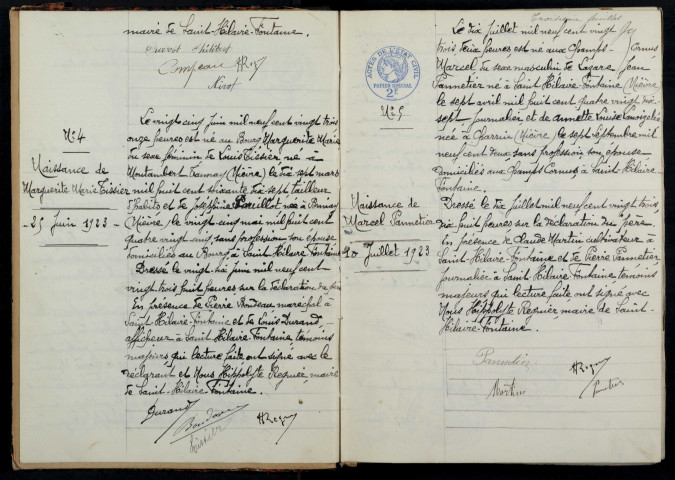 maire de Saint-Hilaire-Fontaine.
Compeau HRey
Nirot
N° 4
Naissance de
Marguerite Marie Tissier
25 Juin 1923
Le vingt cinq juin mil neuf cent vingt trois
onze heures est né au Bourg Marguerite Marie
du sexe féminin de Louis Tissier né à
Montambert Tannay (Nièvre) le dix sept mars
mil huit cent soixante dix sept tailleur
d'habits et de Joséphine Pouillot née à
(Nièvre) le vingt cinq mai mil huit cent
quatre vingt cinq sans profession son épouse
domiciliés au Bourg à Saint Hilaire Fontaine
Dressé le vingt six juin mil neuf cent
vingt trois huit heures sur la déclaration du père
En présence de Pierre Bondeau maréchal à
Saint Hilaire Fontaine et de Louis Durand
à Saint Hilaire Fontaine témoins
majeurs qui lecture faite ont signé avec le
déclarant et Nous Hippolyte Regnier maire
de Saint-Hilaire-Fontaine.
Durand
Bondeau HRey
Tissier
Troisième feuillet
ACTES DE L'ETAT CIVIL
PAPIER SPECIAL
2F
N° 5
Naissance de
Marcel Pannetier
10 Juillet 1923
Le dix juillet mil neuf cent vingt
trois deux heures est né aux Champs Cornus
Marcel du sexe masculin de Lazare Jean
Pannetier né à Saint Hilaire Fontaine (Nièvre)
le sept avril mil huit cent quatre vingt dix
sept journalier et de Annette Louise
née à Charrin (Nièvre) le sept septembre mil
neuf cent deux sans profession son épouse
domiciliés aux Champs Cornus à Saint-Hilaire-
Fontaine.
Dressé le dix juillet mil neuf cent vingt trois,
dix huit heures sur la déclaration du père.
En présence de Claude Martin cultivateur à
Saint-Hilaire-Fontaine et de Pierre Pannetier
journalier à Saint Hilaire Fontaine témoins
majeurs qui lecture faite ont signé avec
Nous Hippolyte Regnier, maire de Saint-
Hilaire-Fontaine.
Pannetier
Martin HRey Pannetier